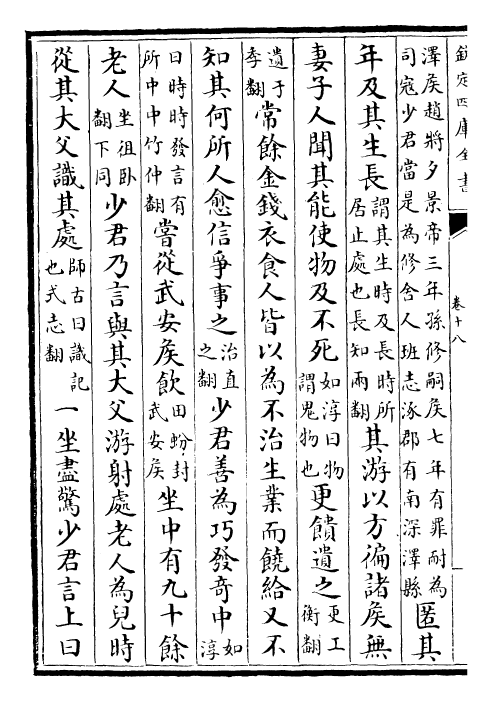 欽定四庫全書
卷十八
澤侯趙將夕景帝三年孫修嗣侯七年有罪耐為
司寇少君當是為修舍人班志涿郡有南深澤縣
匿其
年及其生長
謂其生時及長時所
居止處也長知兩翻
其游以方徧諸侯無
妻子人聞其能使物及不死
如淳曰物
謂鬼物也
更饋遺之
更工
衡翻
遺于
季翻
常餘金錢衣食人皆以為不治生業而饒給又不
知其何所人愈信爭事之
治直
之翻
少君善為巧發奇中
如
淳
曰時時發言有
所中中竹仲翻
嘗從武安侯飲
田蚡封
武安侯
坐中有九十餘
老人
坐徂卧
翻下同
少君乃言與其大父游射處老人為兒時
從其大父識其處
師古曰識記
也式志翻
一坐盡驚少君言上曰